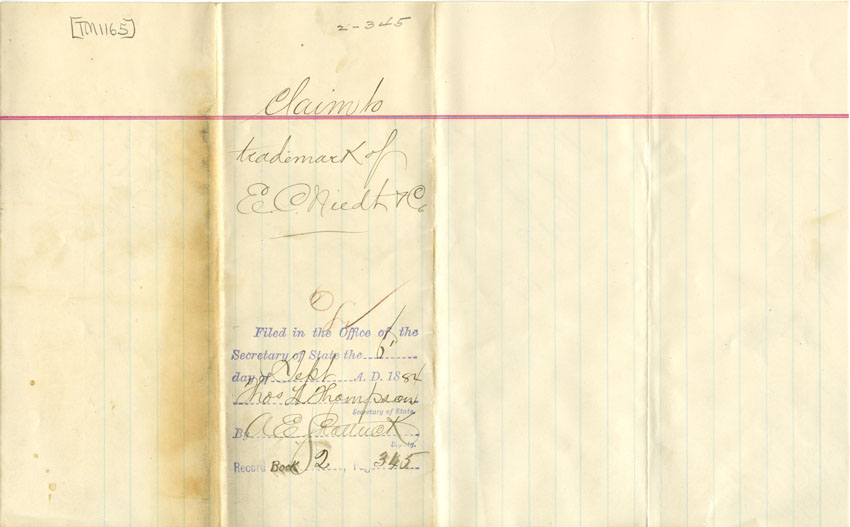 [TM1165]
2-345
Claim to
trademark of
E. C. Niedt & Co
Filed in the Office of the
Secretary of State the 6
day of Sept A. D. 1884
Thos L Thompson
Secretary of State.
By A. E.
Deputy.
Record Book 2, Pg 345